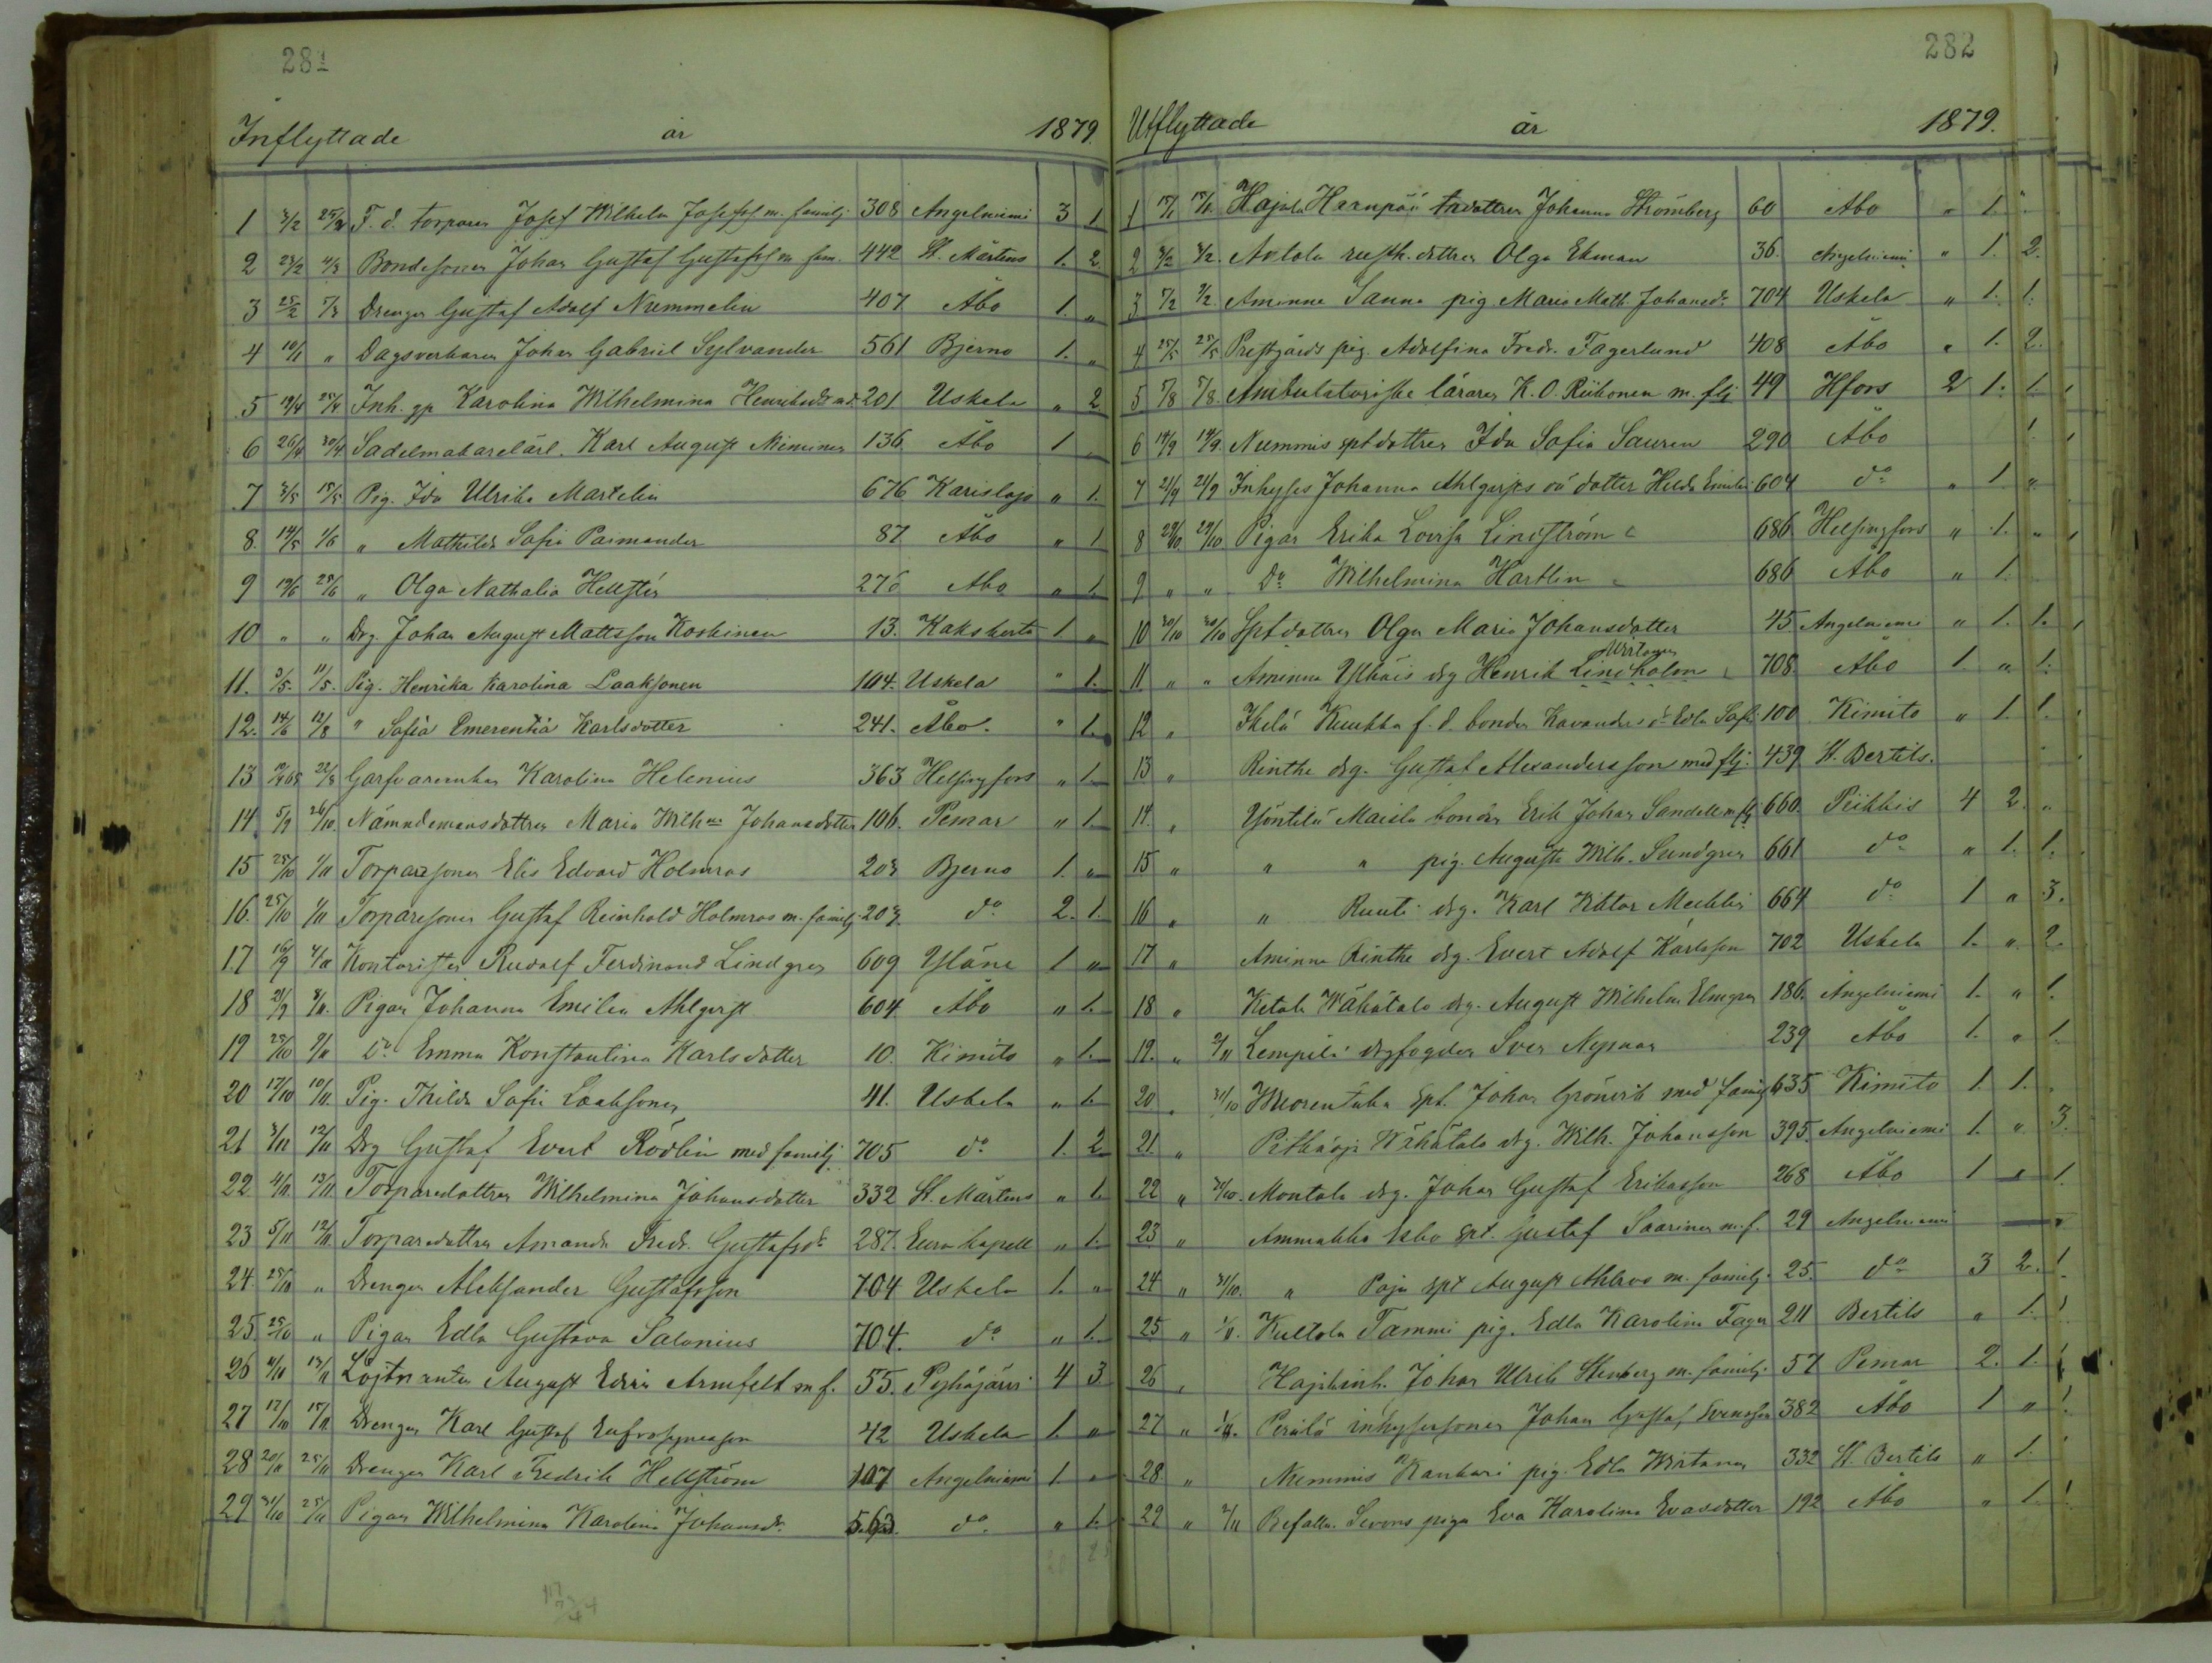 281
Inflyttade år 1879.
1 3/2 25/2 F. d. torparen Josef Wilhelm Josefss. m. familj 308 Angelniemi 3 1
2 23/2 4/3 Bondesonen Johan Gustaf Gustafss. m fam. 442 St. Mårtens 1. 2.
3 25/2 5/3 Drengen Gustaf Adolf Nummelin 407 Åbo 1. „
4 10/1 „ Dagsverkaren Johan Gabriel Sylvander 561 Bjerno 1. „
5 19/4 25/4 Inh. gp Karolina Wilhelmina 201 Uskela „ 2
6 26/4 30/4 Sadelmakarelärl. Karl August Nieminen 136. Åbo 1 „
7 3/5 15/5 Pig. Ida Ulrika Martelin 676 Karislojo „ 1.
8. 14/5 1/6 „ Mathilda Sofia Paimander 87 Åbo „ 1
9 19/6 25/6 „ Olga Nathalia Hellstén 276 Abo „ 1.
10 „ „ Drg. Johan August Mattsson Koskinen 13. Kakskerta 1 „
11. 3/5. 11/5. Pig. Henrika Karolina Laaksonen 104. Uskela " 1.
12. 14/6 12/8 " Sofia Emerentia Karlsdotter 241. Åbo. " 1.
13 22/8 Garfvareenkan Karolina Helenius 363 Helsingfors „ 1.
14. 5/9 26/10. Nämndemansdottren Maria Wilhna Johansdotter 106. Pemar „ 1.
15 25/10 1/11 Torparesonen Elis Edvard Holmros 203 Bjerno 1. „
16. 25/10 1/11 Torparesonen Gustaf Reinhold Holmros m. familj 203. do 2. 1.
17 16/9 4/11 Kontoristen Rudolf Ferdinand Lindgren 609 Yläne 1 „
18 21/9 8/11. Pigan Johanna Emilia Ahlqvist 604 Åbo „ 1.
19 25/10 9/11 Do Emma Konstantina Karlsdotter 10. Kimito „ 1.
20 17/10 10/11. Pig. Thilda Sofia Laaksonen 41. Uskela „ 1.
21 3/11 12/11 Drg Gustaf Evert Rödlin med familj 705 do 1. 2
22 4/11. 13/11. Torparedottren Wilhelmina Johansdotter 332 St. Mårtens „ 1.
23 5/11 12/11 Torparedottren Amanda Fredr. Gustafsdr 287. Eura kapell „ 1.
24 25/10 „ Drengen Aleksander Gustafsson 704 Uskela 1. „
25 25/10 „ Pigan Edla Gustava Salonius 704. do „ 1.
26 4/11 13/11 Löjtnanten August Edvin Armfelt m f. 55. Pyhäjärvi 4 3
27 17/10 15/11 Drengen Karl Gustaf Eufrosyneson 42 Uskela 1. „
28 20/11 25/11 Drengen Karl Fredrik Hellström 107 Angelniemi 1 „
29 31/10 25/11 Pigan Wilhelmina Karolina Johansdr. 563. do. „ 1.
282
Utflyttade år 1879.
1 15/1 15/1. Hajala Harnpää trdottren Johanna Strömberg 60 Abo „ 1.
2 3/2 3/2. Avtola rusth. dottren Olga Ekman 36. Angelniemi „ 1. 2.
3 7/2 7/2. Aminne Sanna pig. Maria Math. Johansdr 704 Uskela „ 1. 1.
4 25/5 25/5 Prestgårds pig. Adolfina Fredr. Fagerlund 408 Åbo „ 1. 2.
5 7/8 7/8. Ambulatoriske läraren K. O. Riikonen m. flj 49 Hfors 2 1. 1.
6 14/9 14/9. Nummis sptdottren Ida Sofia Sauren 290 Åbo 1.
7 21/9 21/9 Inhyses Johanna Ahlqvists oä dotter Hilda Emilia 604 do „ 1 „
8 29/10 29/10. Pigan Erika Lovisa Lindström 686 Helsingfors „ 1. „
9 „ „ Do Wilhelmina Hartlin 686 Åbo „ 1
10 30/10 30/10 Sptdottren Olga Maria Johansdotter 45 Angelniemi „ 1. 1.
Wirtanen
11 „ „ Aminne Ylhäis drg Henrik Lindholm 708. Abo 1. „ 1.
12 „ Ikelä Kuukka f. d. bonden Kavanders dr Edla Sofia 100 Kimito „ 1. 1.
13 „ Rinthe drg. Gustaf Alexandersson med flj. 439 St. Bertils.
14. „ Yöntilä Maisla bonden Erik Johan Sandell m flj 660. Piikkis 4 2. „
15 „ „ „ pig. Augusta Wilh. Sundgren 661 do „ 1. 1.
16 „ „ Ruuti drg. Karl Viktor Mecklin 664 do 1 „ 3.
17 „ Aminne Rinthe drg. Evert Adolf Karlsson 702 Uskela 1. „ 2.
18 „ Ketola Wähätalo drg. August Wilhelm Elmgren 186. Angelniemi 1. „ 1.
19. „ 2/11 Lempilä drgfogden Sven Nyman 239 Abo 1. „ 1.
20 „ 31/10 spt. Johan Grönvik med familj 635 Kimito 1. 1.
21. „ Pitkäoja Wähätalo drg. Wilh. Johansson 395. Angelniemi 1. „ 3.
22 „ 31/10. Montola drg. Johan Gustaf Eriksson 268 Åbo 1 „ 1.
23 „ Ammakka Esbo spt. Gustaf Saarinen m. f. 29 Angelniemi
24 „ 31/10. „ Paja spt August Ahlroos m. familj. 25. do 3 2. 1.
25 „ 1/11. Kultola Tammi pig. Edla Karolina Fager 211 Bertils „ 1. 1
26 „ Johan Ulrik Stenberg m. familj. 57 Pemar 2. 1. 1
27 „ 1/11. Perälä inhysessonen Johan Gustaf Svensson 382 Åbo 1 „ 1.
28. „ Nummis Kankari pig. Edla Wirtanen 332 St. Bertils „ 1.
29 „ 2/11 Befalln. Sevons piga Eva Karolina Evasdotter 192 Åbo „ 1. 1.